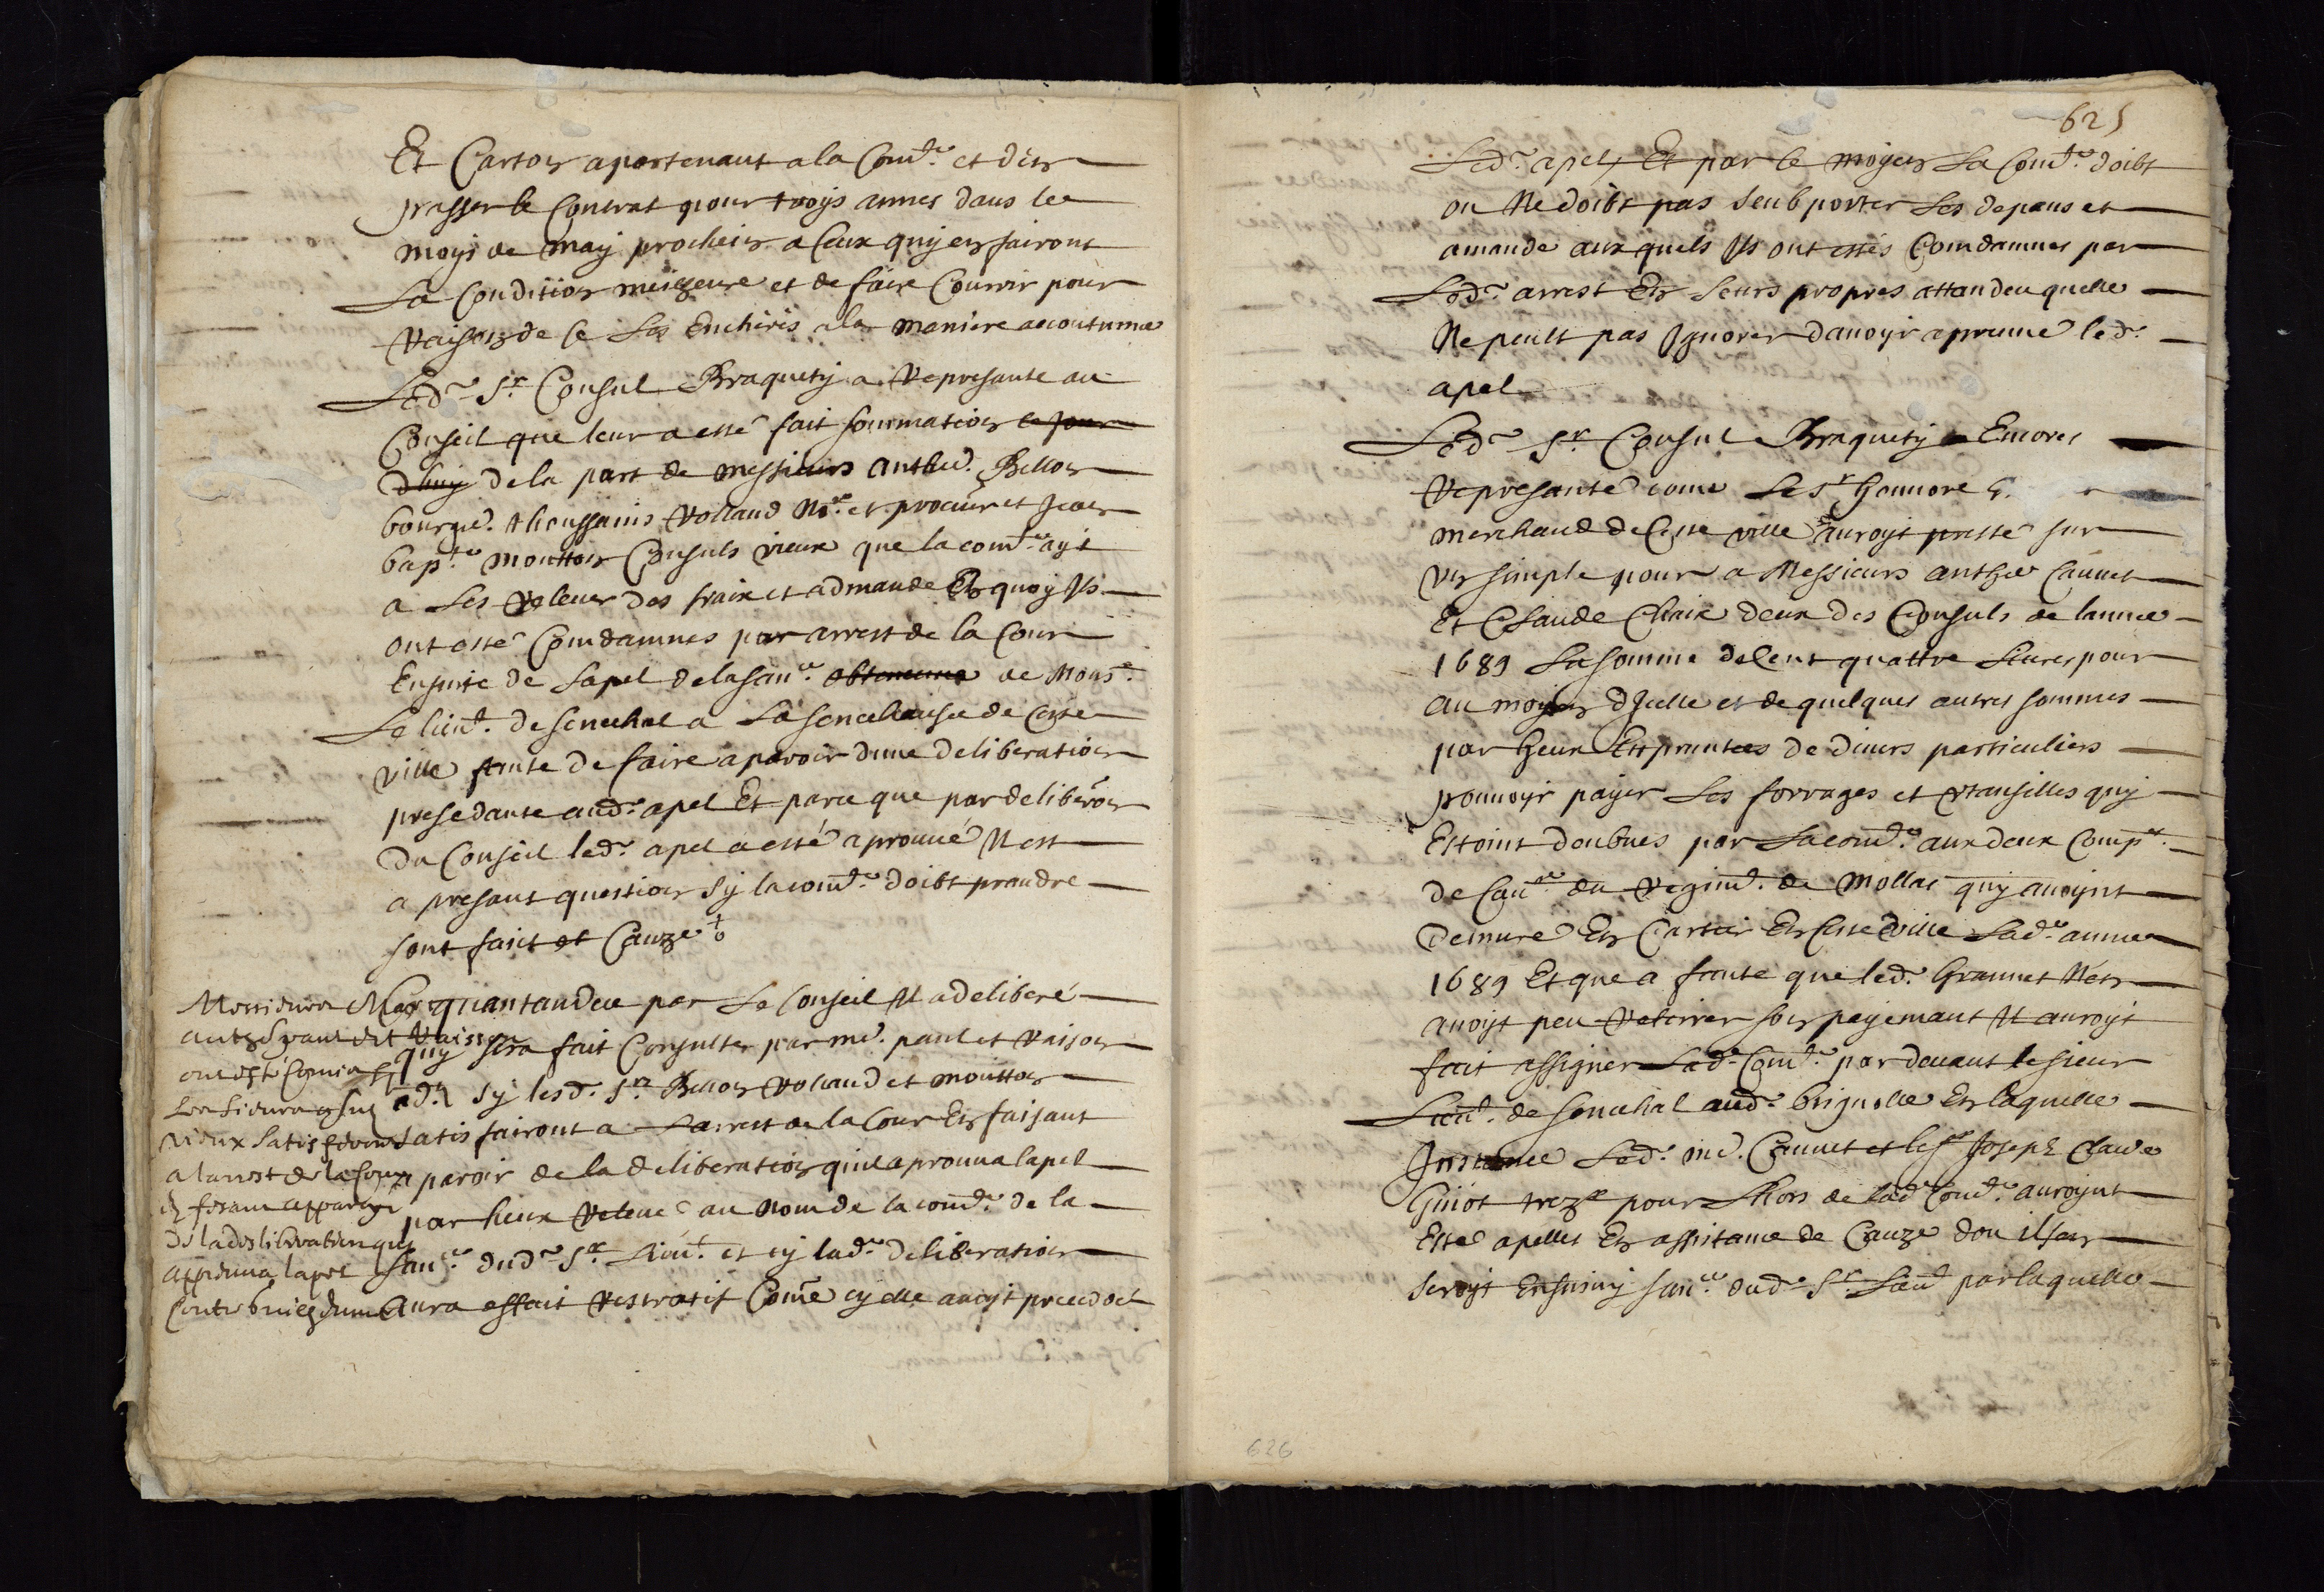 Et Carton apartenant a la Com.te et den
passer le Contrat pour troys annes dans le
moys de may prochein a Ceux quy en fairont
La Condition meilleure et de faire Courrir pour
Raison de ce Les Encheres a la maniere acoutumee
Led.t Sr Consul Braquety a Represante au
Conseil que leur a esté fait sommation le jour
dhuy de la part de messieurs anthe. Bellon
bourge. thoussains Rolland No.re et procur et Jean
bap.te moutton Consuls vieux que la com.te ayt
a Les Relever des fraix et admande En quoy Ils
ont esté Condamnes par arrest de la Cour
Ensuite de Lapel de la san.ce obtenue de Mons.r
Le lieut. de senechal a La senechausee de Ceste
ville faute de faire aparoir dune deliberation
presedante aud. apel Et parce que par deliberaon
Du Conseil led. apel a esté aprouvé Il est
a presant question sy la com.te doibt prandre
sont fait et Cauze
Messieurs
antz
ont esté
Les sieurs
vieux satisferont
a larrest de la Cour
en fesant apparoir
de la desliberation quy
approuva lapel
quantandeu par Le Conseil Il a deliberé
quy sera fait Consulter par me. paul et Raison
ad. sy lesd. srs Bellon Rolland et moutton
satisfairont a Larrest de la Cour En faisant
aparoir de la deliberation quil aprouva lapel
par heux Releve au nom de la com.te de la
san.ce dud. Sr Lieut. et sy lad. deliberation
aura effait Restratif Come sy elle avoyt precedoit
625
Led. apel, Et par le moyen La Com.te doibt
ou Ne doibt pas seul porter Les depans et
amande aux quels Ils ont estés Condamnes par
Led. arrest En leurs propres attandeu quelle
Ne peult pas Ignorer davoyr aprouve led.
apel
Led. Sr Consul Braquety a Encores
Represante come Le Sr honnore
merchand de Ceste ville auroyt presté sur
un simple pour a Messieurs anthe Cauvet
Et Claude Chaix deux des Consuls de lannee
1689 La somme de Cent quattre Livres pour
au moyen dIcelle et de quelques autres sommes
par heux Enpruntees de divers particuliers
pouvoyr payer Les forrages et Utansilles quy
Estoint doubues par La com.te aux deux Comp.es
de Cav.rie du Regim. de Mollac quy avoynt
demure En Cartier En Ceste ville Lad. annee
1689 Et que a faute que led. Grannet Nen
avoyt peu Retirrer son payemant Il auroyt
fait assigner Lad. Com.te par devant le sieur
Lieut. de senechal aud. brignolle En laquelle
Instance Led. me. Cauvet et le Sr Joseph Claude
Guiot trez.r pour Lhors de lad. Com.te auroynt
Esté apelles En assistance de Cauze dou il sen
seroyt Ensuivy san.ce dud. Sr Lieut par laquelle
626